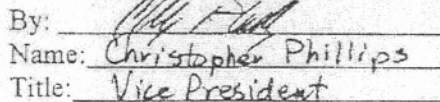 By:
Name: Christopher Phillips
Title: Vice President